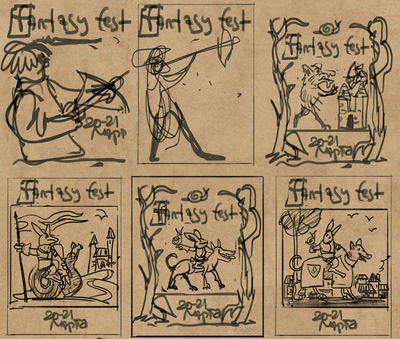 Fantasy fest
20-21
марта
Fantasy fest
Fantasy fest
20-21
марта
Fantasy fest
20-21
марта
Fantasy fest
20-21
марта
Fantasy fest
20-21
марта